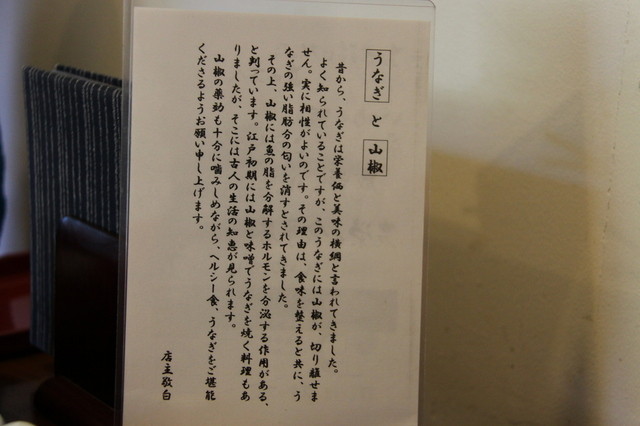 うなぎ と 山椒
昔から、うなぎは栄養価と美味の横綱と言われてきました。
よく知られていることですが、このうなぎには山椒が、切り離せま
せん。実に相性がよいのです。その理由は、食味を整えると共に、う
なぎの強い脂肪分の匂いを消すとされてきました。
その上、山椒には魚の脂を分解するホルモンを分泌する作用がある、
と判っています。江戸初期には山椒と味噌でうなぎを焼く料理もあ
りましたが、そこには古人の生活の知恵が見られます。
山椒の薬効も十分に噛みしめながら、ヘルシー食、うなぎをご堪能
くださるようお願い申し上げます。
店主敬白